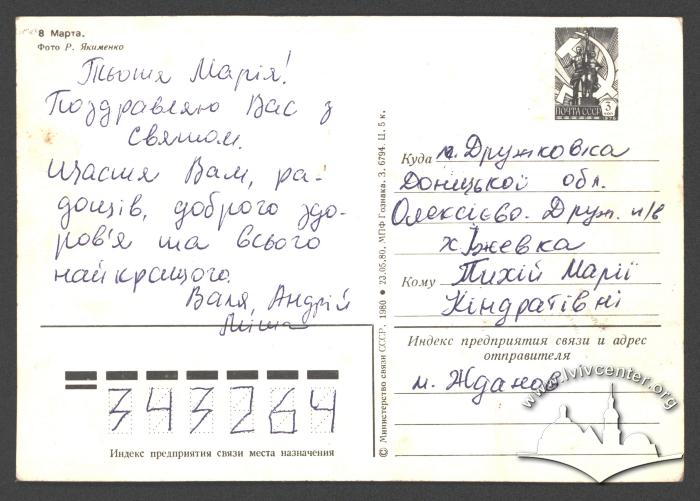 8 Марта.
Фото Р. Якименко
Тьотя Марія!
Поздравляю Вас з
святом.
Щастя Вам, ра-
дощів, доброго здо-
ров'я та всього
найкращого.
Валя, Андрій
Міша
ПОЧТА СССР
3
КОП
© Министерство связи СССР, 1980 • 23.05.80. МПФ Гознака. З. 6794. Ц. 5 к.
Куда м. Дружковка
Донецької обл.
Олексієво. Друж. п/в
х Їжевка
Кому Тихій Марії
Кіндратівні
Индекс предприятия связи и адрес
отправителя
м. Жданов
343264
Индекс предприятия связи места назначения
©www.lvivcenter.org